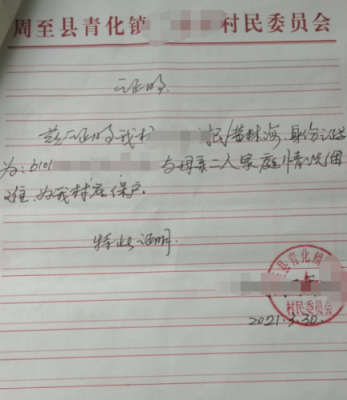 周至县青化镇 村民委员会
证明
兹证明我村 民黄林海 身份证号
为:6101 与母亲二人家庭情况困
难,为我村低保户。
特此证明.
至县青化镇
村民委员会
2021.3.30